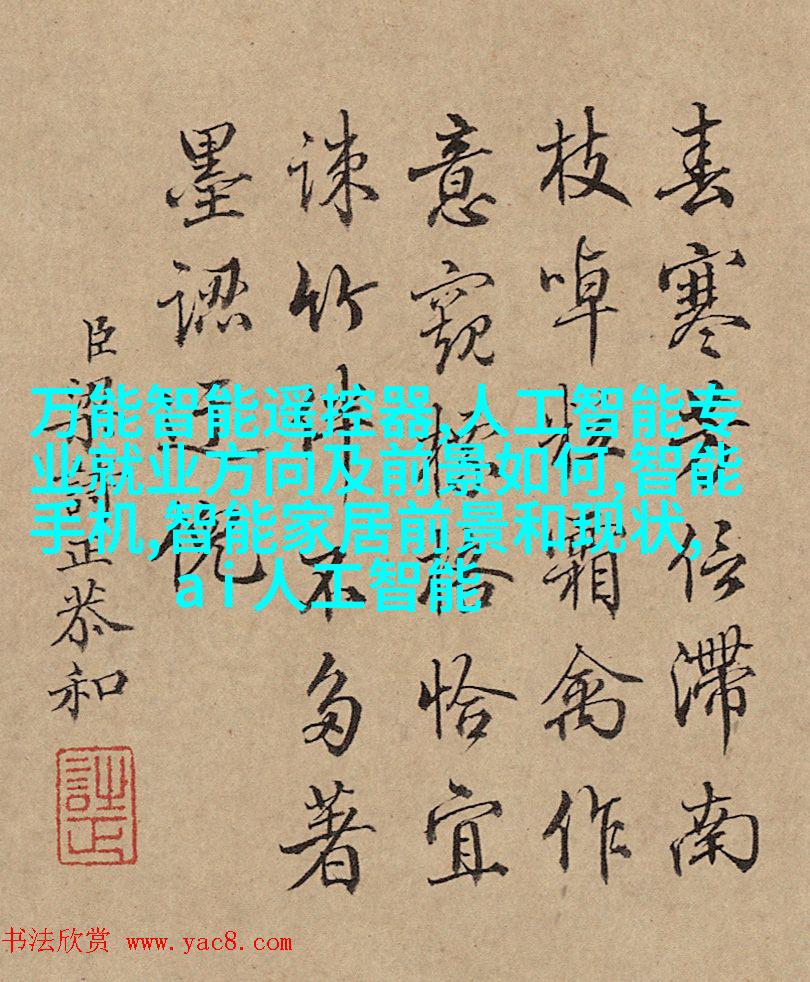 春寒芳信滞南
枝啅霜禽作
意窺横格恰宜
踈竹伴不多著
墨認
臣梁詩正恭和
詩正
万能智能遥控器,人工智能专
业就业方向及前景如何,智能
手机,智能家居前景和现状,
ai人工智能
书法欣赏 www.yac8.com